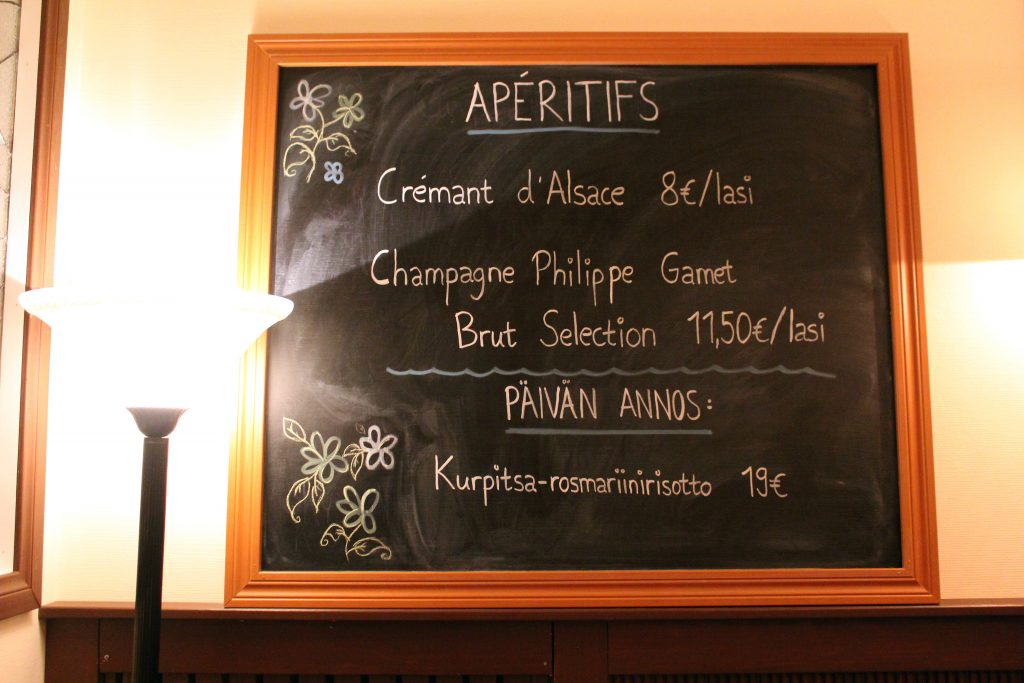 APÉRITIFS
Crémant d'Alsace 8€/lasi
Champagne Philippe Gamet
Brut Selection 11,50€/lasi
PÄIVÄN ANNOS:
Kurpitsa-rosmariinirisotto 19€